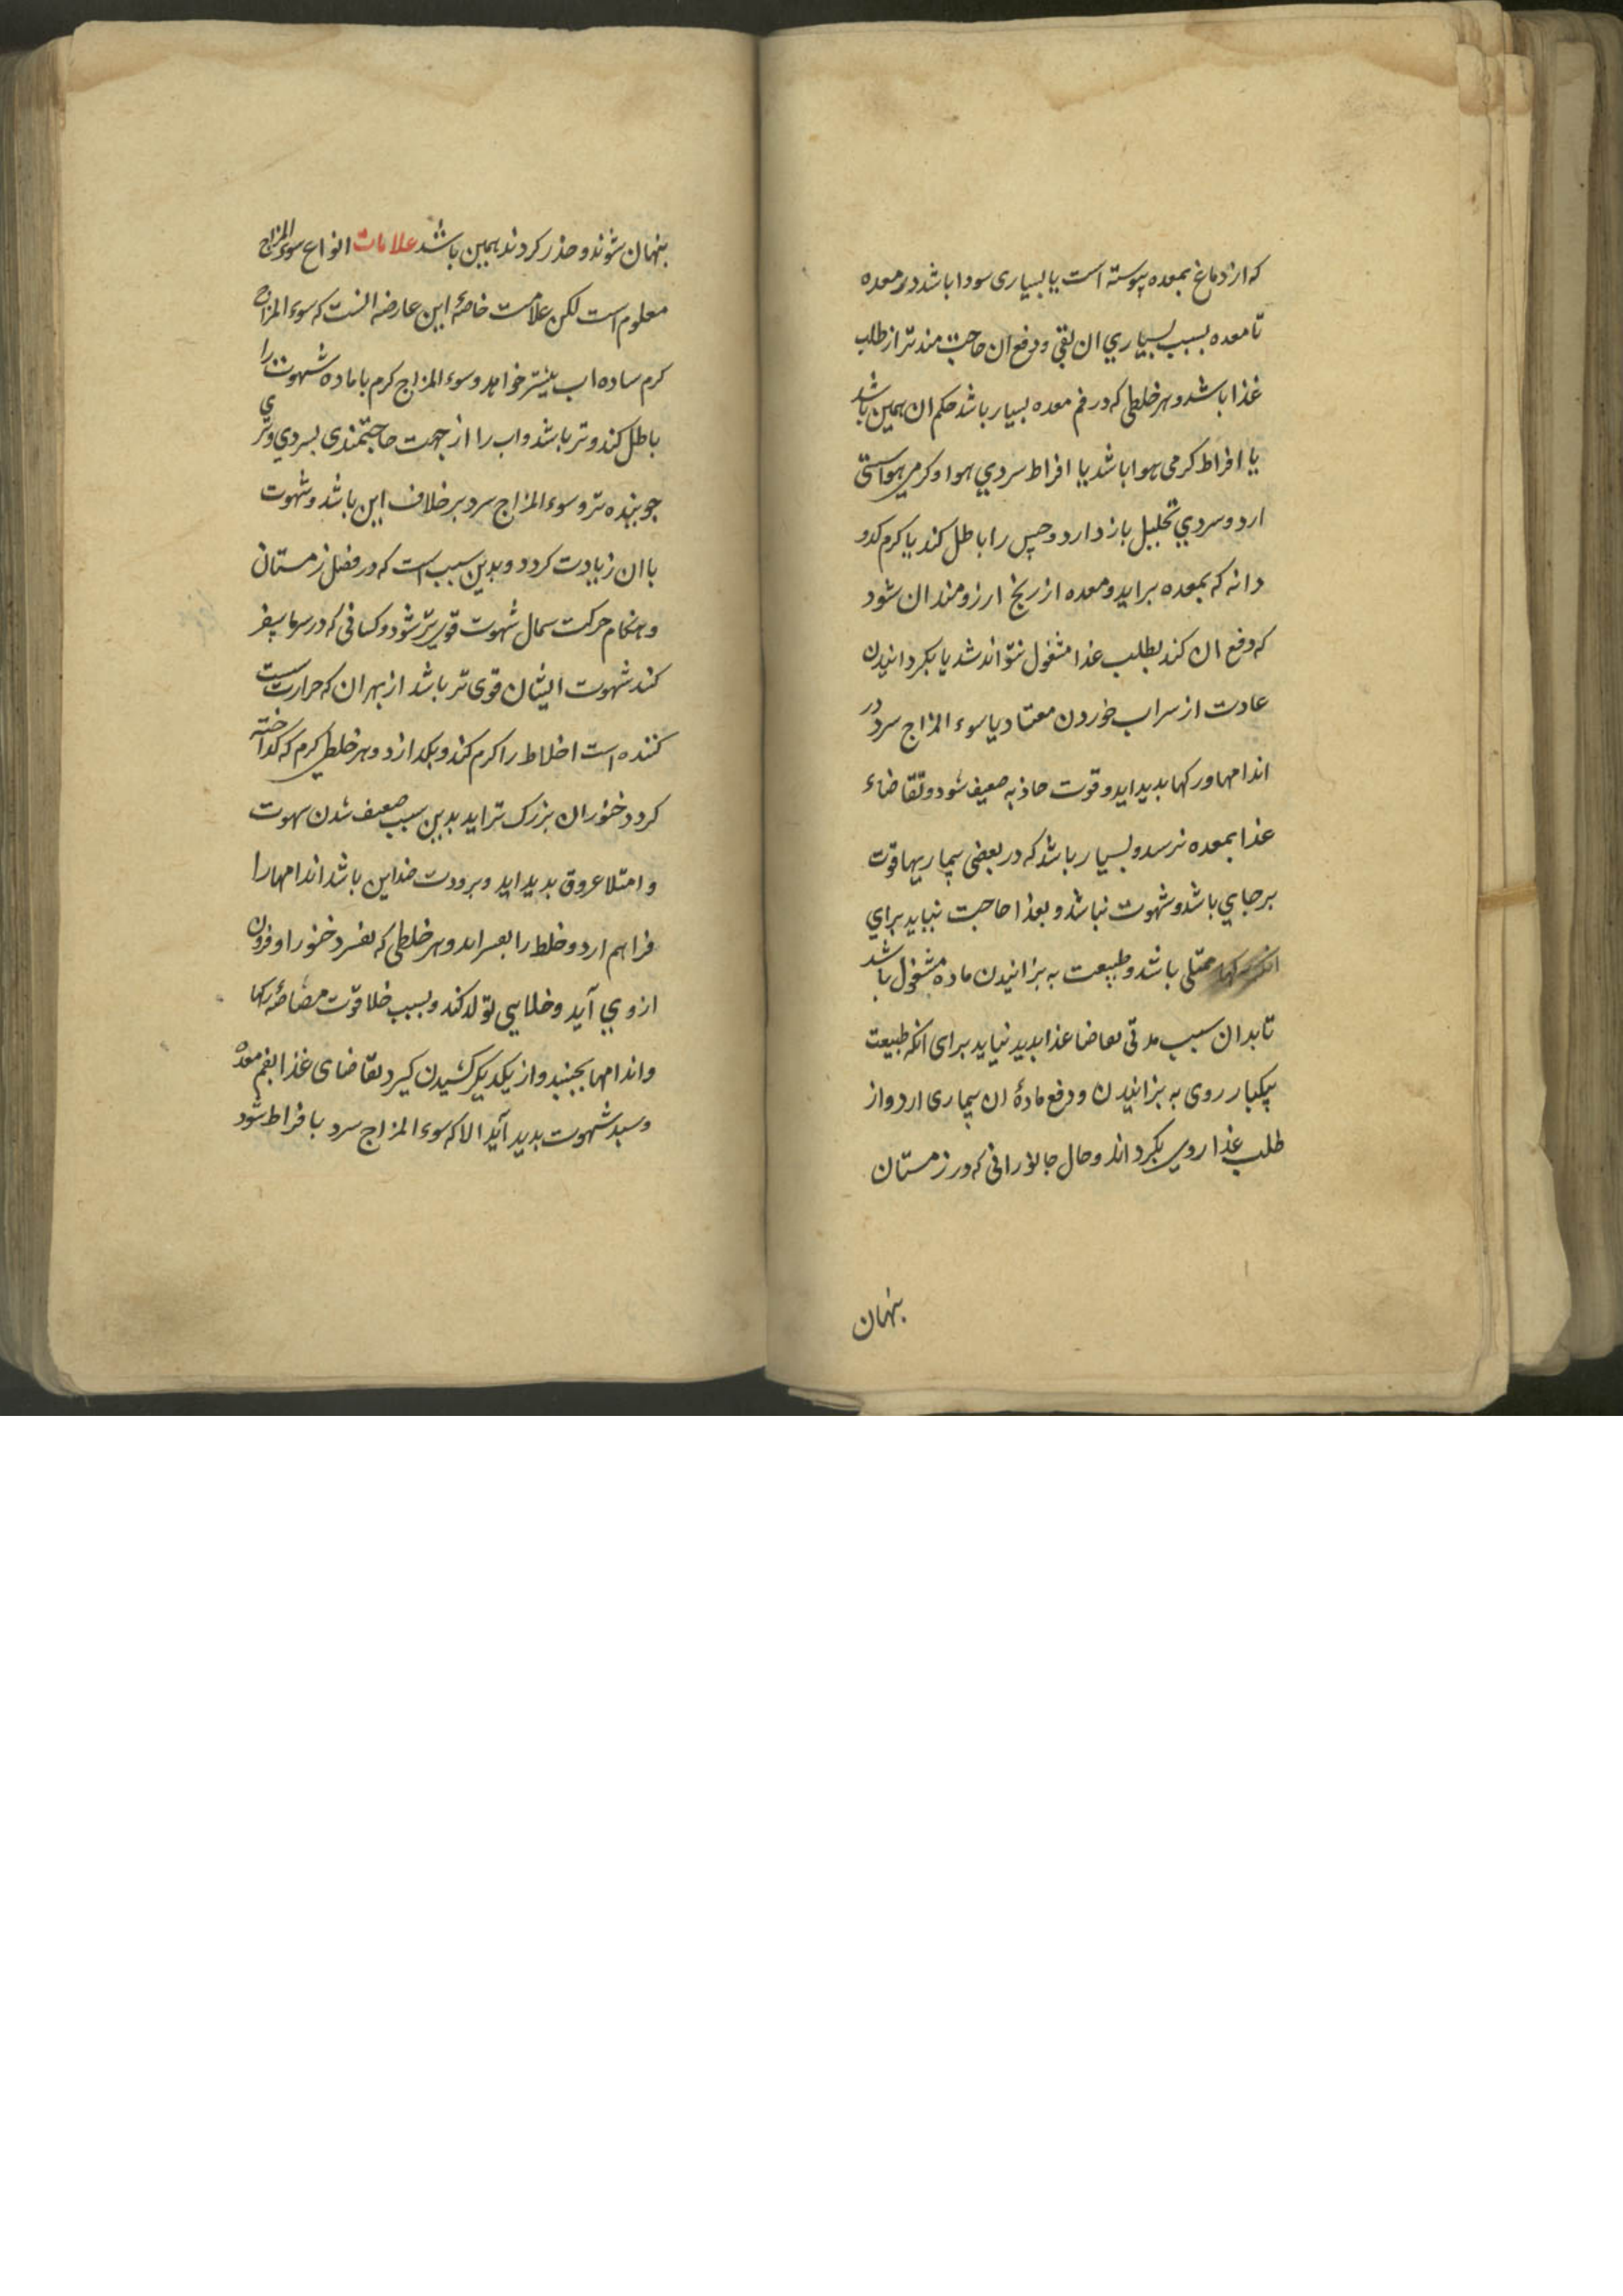 که از دماغ بمعده پیوسته است یا بسیاری سودا باشد در معده
تا معده بسبب بسیاري ان بقی و دفع ان حاجت مندتر از طلب
غذا باشد و هر خلطی که در فم معده بسیار باشد حکم ان همین باشد
یا افراط کرمی هوا باشد یا افراط سردي هوا و کرمی هوا سستی
ارد و سردي تحلیل باز دارد و حس را باطل کند یا کرم کدو
دانه که بمعده براید و معده از رنج ارزومند ان شود
که دفع ان کند بطلب غذا مشغول نتواند شد یا بکردانیدن
عادت از سراب خوردن معتاد یا سوء المزاج سرد در
اندامها و رکها بدید اید و قوت جاذبه ضعیف شود و تقاضاء
غذا بمعده نرسد و بسیار باشد که در بعضی بیماریها قوت
برجاي باشد و شهوت نباشد و بغذا حاجت نیاید براي
انکه رکها ممتلی باشد و طبیعت به بزانیدن ماده مشغول باشد
تا بدان سبب مدتی تقاضا غذا بدید نیاید برای انکه طبیعت
بیکبار روی به بزانیدن و دفع مادهٔ ان بیماری ارد و از
طلب غذا روی بکرداند و حال جانورانی که در زمستان
بنهان
بنهان شوند و حذر کردند همین باشد علامات انواع سوء المزاج
معلوم است لکن علامت خاصهٔ این عارضه انست که سوء المزاج
کرم ساده اب بیشتر خواهد و سوء المزاج کرم با ماده شهوت را
باطل کند و تر باشد و اب را از جهت حاجتمندی بسردي و تري
جوینده تر و سوء المزاج سرد برخلاف این باشد و شهوت
با ان زیادت کردد و بدین سبب است که در فصل زمستان
و هنکام حرکت سمال شهوت قوی تر شود و کسانی که در سرما سفر
کند شهوت ایشان قوی تر باشد از بهر ان که حرارت سست
کننده است اخلاط را کرم کند و بکدازد و هر خلطی کرم که کداخته
کردد خنوران بزرک تر اید بدین سبب ضعیف شدن سهوت
و امتلا عروق بدید اید و برودت ضد این باشد اندامها را
فراهم ارد و خلط را بفسراند و هر خلطی که بفسرد خنور او فزون
ازوي آید و خلایی تولد کند و بسبب خلا قوت مصاصهٔ رکها
و اندامها بجنبد و از یکدیکر کشیدن کیرد تقاضای غذا بفم معده
و سبد شهوت بدید آید الا که سوء المزاج سرد با فراط شود